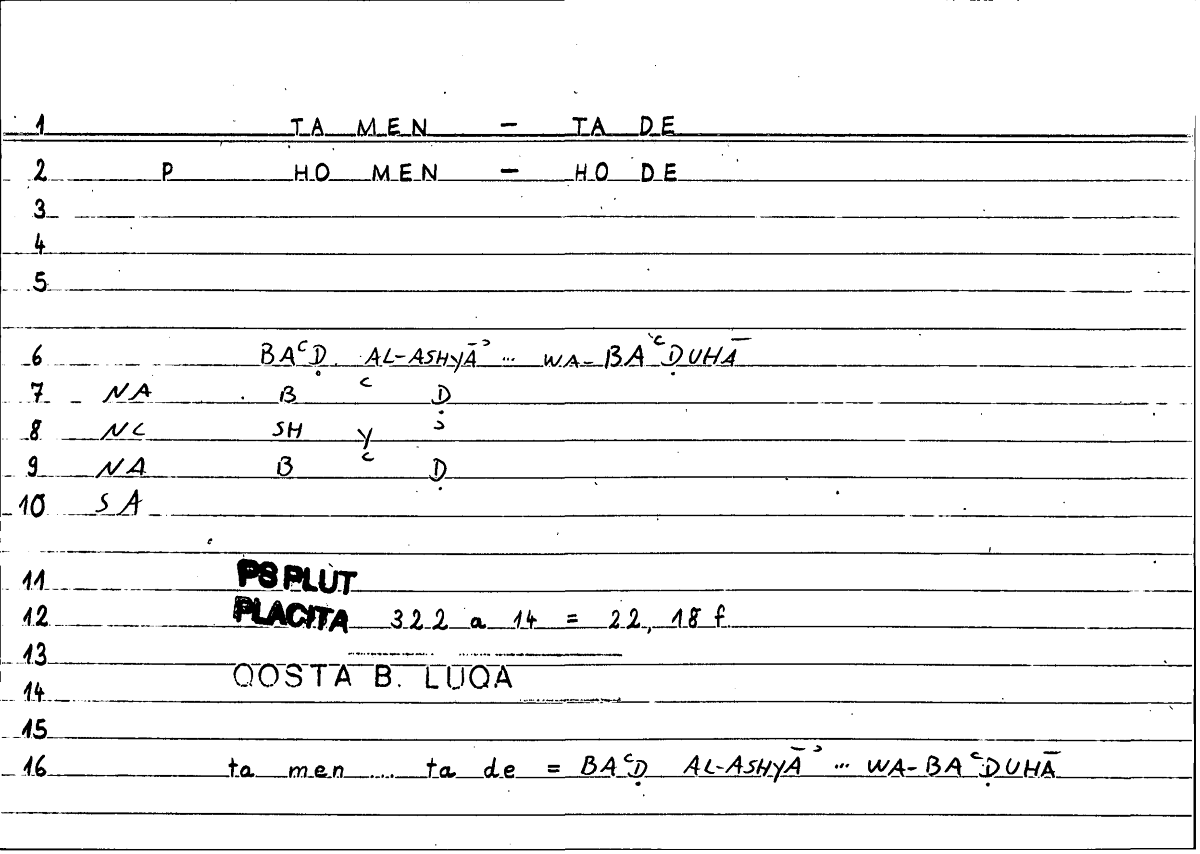 1 TA MEN — TA DE
2 P HO MEN — HO DE
3
4
5
6 BAᶜḌ AL-ASHYĀʾ ... WA-BAᶜḌUHĀ
7 NA B ᶜ Ḍ
8 NC SH Y ʾ
9 NA B ᶜ Ḍ
10 SA
11 PS PLUT
12 PLACITA 322 a 14 = 22, 18 f.
13
QOSTA B. LUQA
14
15
16 ta men ... ta de = BAᶜḌ AL-ASHYĀʾ ... WA-BAᶜḌUHĀ